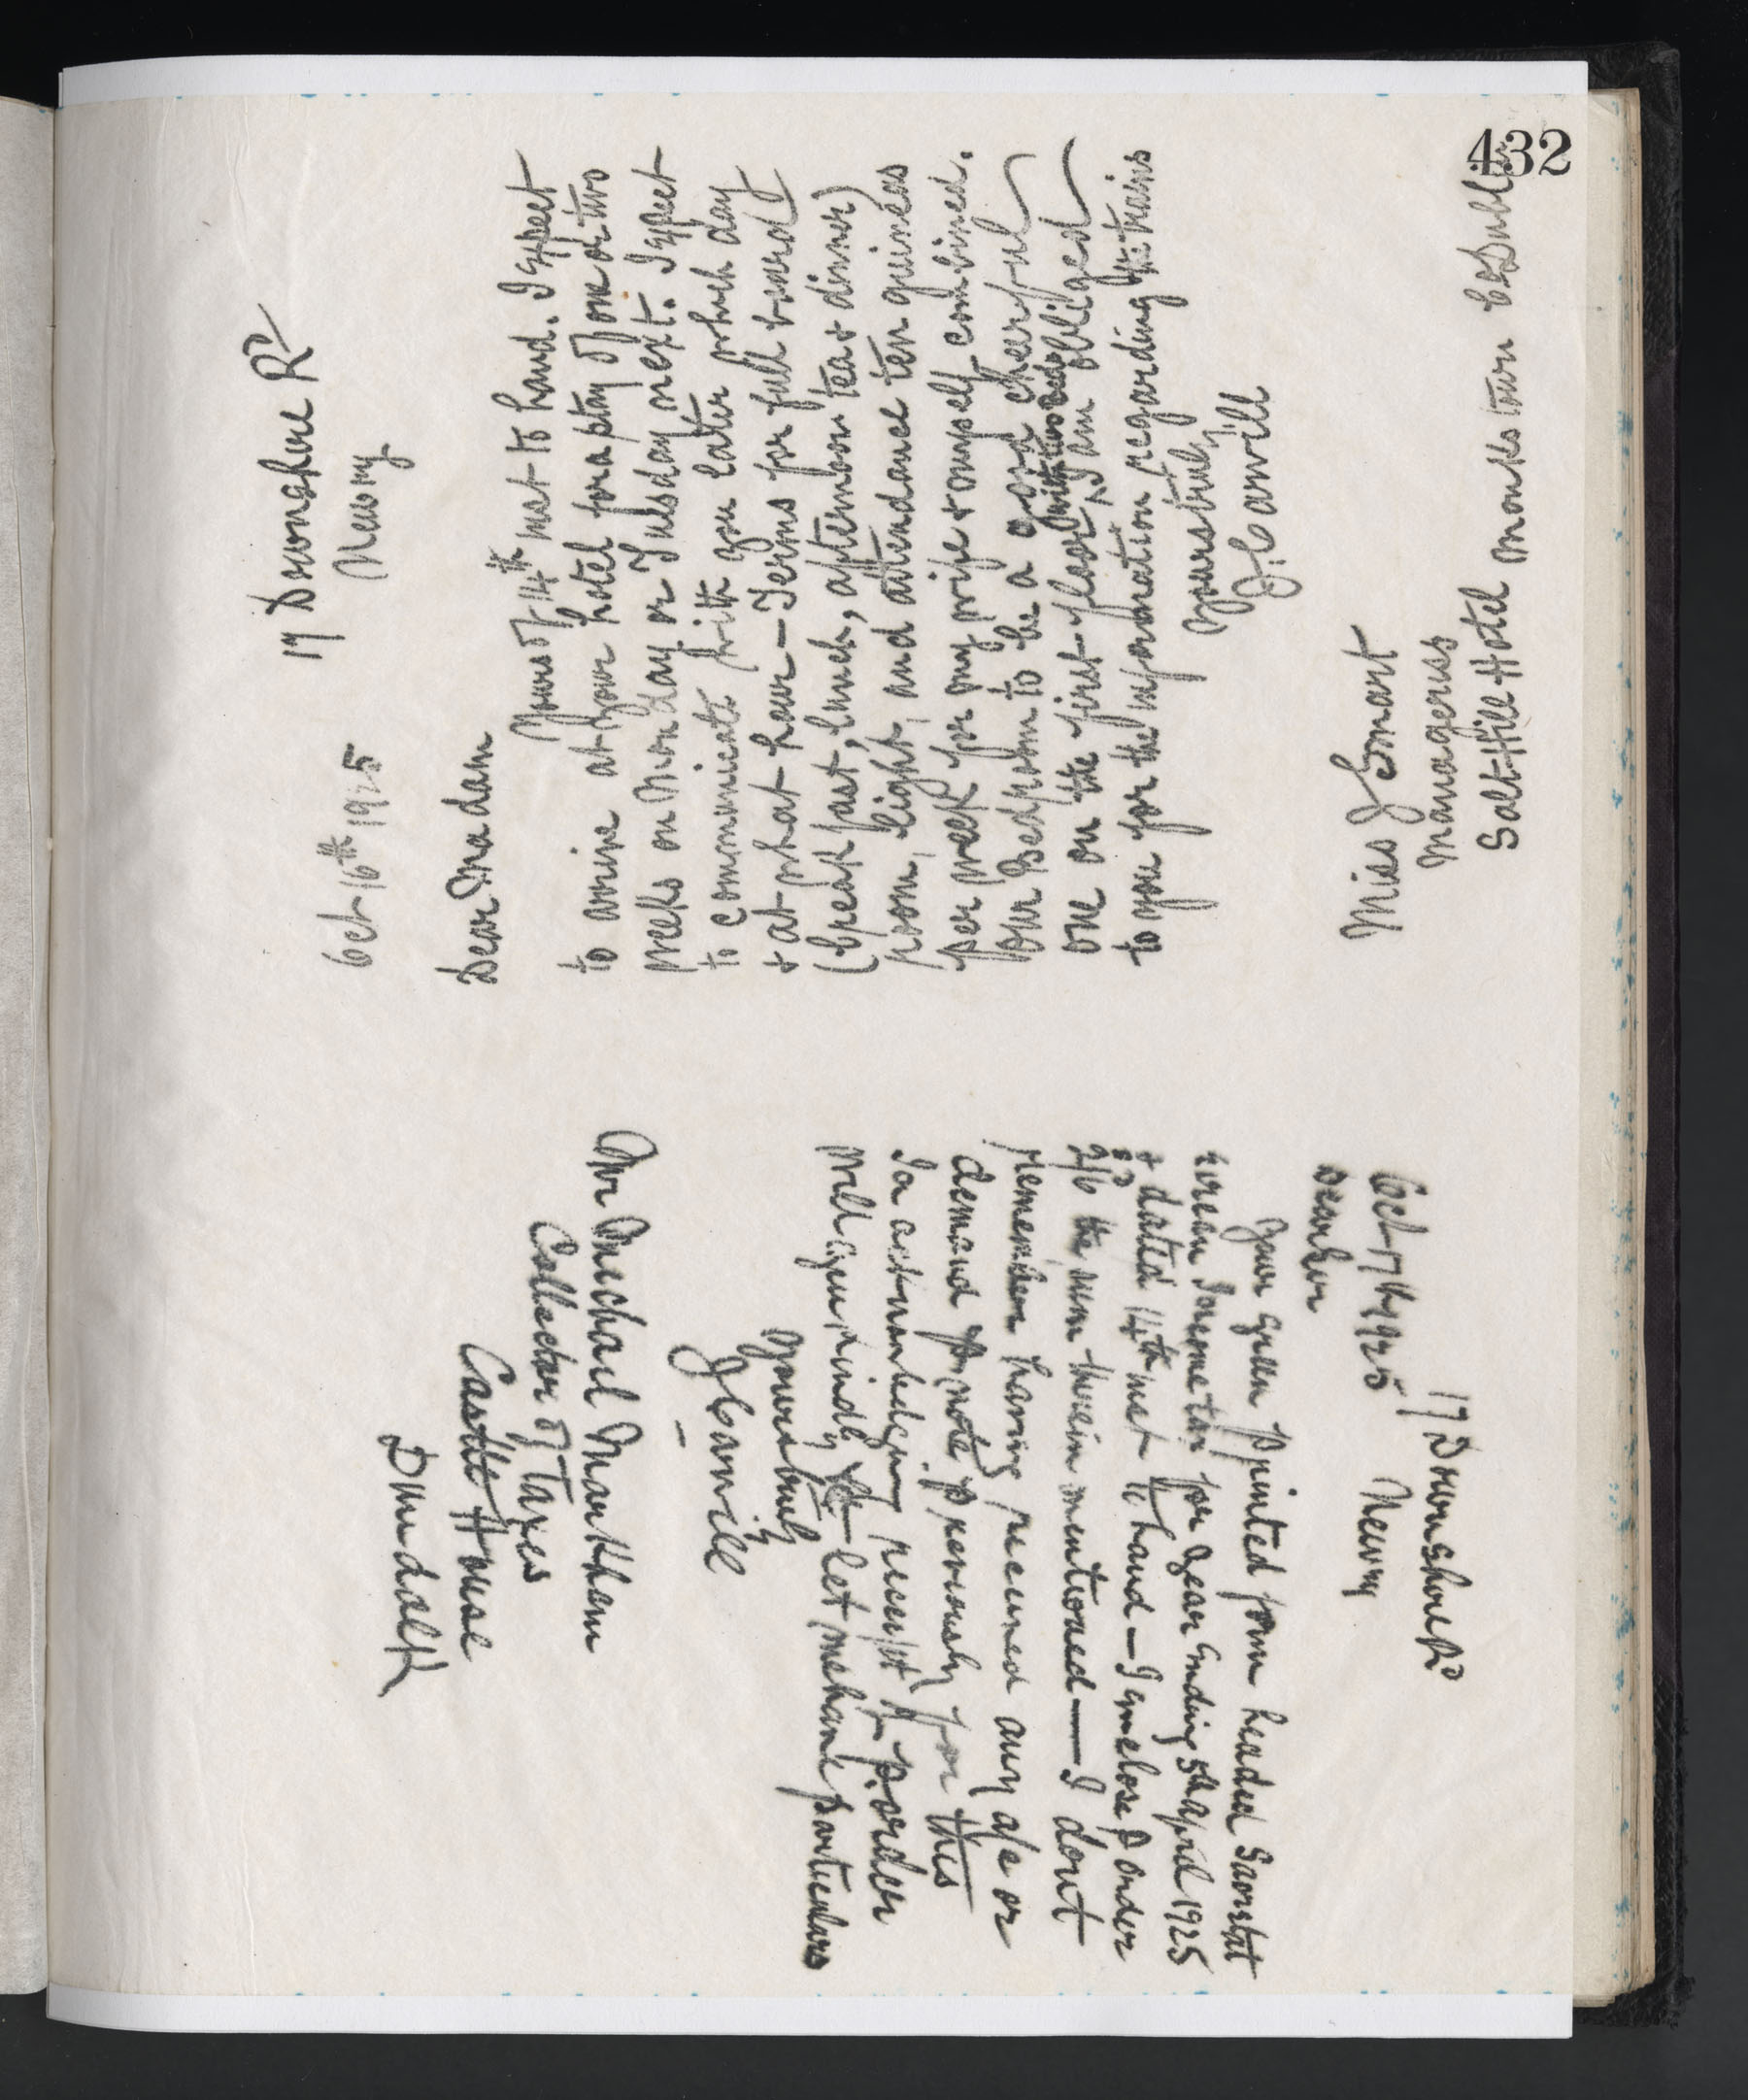 432
17 Downshire Rd
Newry
Oct 16th 1925
Dear Madam
Yours of 14th inst to hand. I expect
to arrive at your hotel for a stay of one or two
weeks on Monday or Tuesday next. I expect
to communicate with you later which day
& at what hour — Terms for full board
(breakfast, lunch, afternoon tea & dinner)
room, light, and attendance ten guineas
per week for my wife & myself combined.
Our Bedroom to be a good cheerful
one on the first floor, with two beds I am obliged
to you for the information regarding the trains
Yours truly
J. Carvill
Miss J Smart
Manageress
Salt Hill Hotel Monkstown Co Dublin
17 Downshire Rd
Oct 17th 1925 Newry
Dear Sir
Your green printed form headed Saorstat
Eireann Income tax for year ending 5th April 1925
& dated 14th inst to hand — I enclose P order
2/6 the sum therein mentioned — I dont
remember having received any a/c or
demand for note previously for this
In acknowledging receipt of P. order
will you kindly let me have particulars
Yours truly
J Carvill
Mr Michael Markham
Collector of Taxes
Castle House
Dundalk